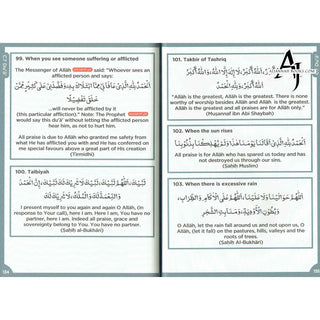 99. When you see someone suffering or afflicted
The Messenger of Allāh said: "Whoever sees an
afflicted person and says:
الْحَمْدُ لِلَّهِ الَّذِي عَافَانِي مِمَّا ابْتَلَاكَ بِهِ وَفَضَّلَنِي عَلَى كَثِيرٍ مِمَّنْ
خَلَقَ تَفْضِيلًا
...will never be afflicted by it
(this particular affliction)." Note: The Prophet
would say this du'ā' without letting the afflicted person
hear him, as not to hurt him.
All praise is due to Allāh who granted me safety from
what He has afflicted you with and He has conferred on
me special favours above a great part of His creation
(Tirmidhī)
100. Talbiyah
لَبَّيْكَ اللَّهُمَّ لَبَّيْكَ، لَبَّيْكَ لَا شَرِيكَ لَكَ لَبَّيْكَ، إِنَّ الْحَمْدَ
وَالنِّعْمَةَ لَكَ وَالْمُلْكَ، لَا شَرِيكَ لَكَ
I present myself to you again and again O Allāh, (in
response to Your call), here I am. Here I am, You have no
partner, here I am. Indeed all praise, grace and
sovereignty belong to You. You have no partner.
(Sahih al-Bukhārī)
134
101. Takbir of Tashriq
اللَّهُ أَكْبَرُ، اللَّهُ أَكْبَرُ، لَا إِلَهَ إِلَّا اللَّهُ وَاللَّهُ أَكْبَرُ، اللَّهُ أَكْبَرُ
وَلِلَّهِ الْحَمْدُ
"Allāh is the greatest, Allāh is the greatest. There is none
worthy of worship besides Allāh and Allāh is the greatest,
Allāh is the greatest and all praises are for Allāh only."
(Musannaf ibn Abī Shaybah)
102. When the sun rises
الْحَمْدُ لِلَّهِ الَّذِي أَقَالَنَا يَوْمَنَا هَذَا وَلَمْ يُهْلِكْنَا بِذُنُوبِنَا
All praise is for Allāh who has spared us today and has
not destroyed us through our sins.
(Sahīh Muslim)
103. When there is excessive rain
اللَّهُمَّ حَوَالَيْنَا وَلَا عَلَيْنَا، اللَّهُمَّ عَلَى الْآكَامِ وَالظِّرَابِ،
وَبُطُونِ الْأَوْدِيَةِ، وَمَنَابِتِ الشَّجَرِ
O Allāh, let the rain fall around us and not upon us, O
Allāh, (let it fall) on the pastures, hills, valleys and the
roots of trees.
(Sahīh Al-Bukhārī)